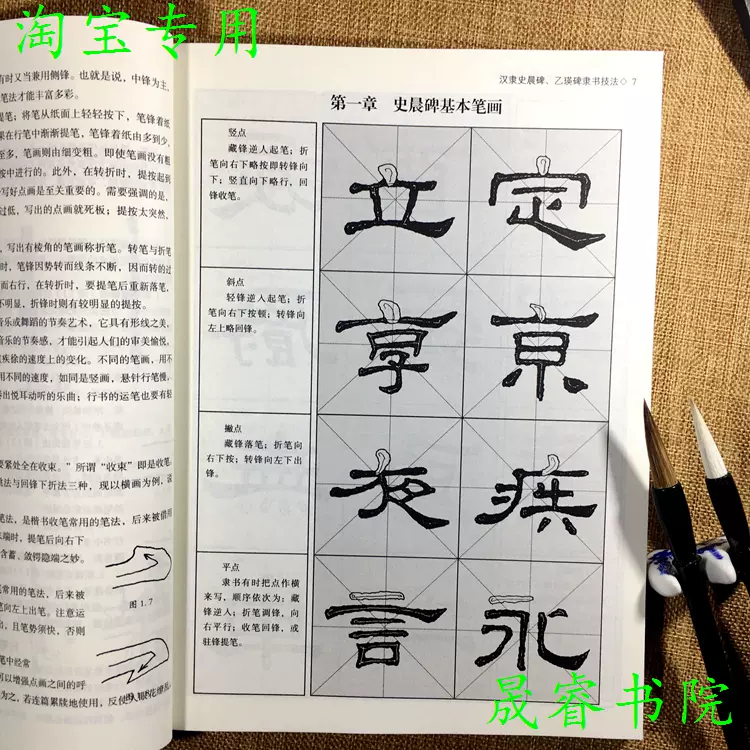 淘宝专用
有时又当兼用侧锋。也就是说，中锋为主，
笔法才能丰富多彩。
提笔；将笔从纸面上轻轻按下，笔锋着纸
果在行笔中渐渐提笔，笔锋着纸由多到少，
至多，笔画则由细变粗。即使笔画没有粗
按中进行的。此外，在转折时，提按起到
写好点画是至关重要的。需要强调的是，
过低，写出的点画就死板；提按太突然，
，写出有棱角的笔画称折笔。转笔与折笔
时，笔锋因势转而线条不断，因而转的过
而右行，在转折时，要提笔后重新落笔，
不明显，折锋时则有较明显的提按。
音乐或舞蹈的节奏艺术，它具有形线之美，
音乐的节奏感，才能引起人们的审美愉悦，
疾徐的速度上的变化。不同的笔画，用不
用不同的速度，如同是竖画，悬针行笔慢，
出悦耳动听的乐曲；行书的运笔也要有轻
要紧处全在收束。”所谓“收束”即是收笔，
挑法与回锋下折法三种，现以横画为例，说
笔法，是楷书收笔常用的笔法，后来被借用
末端时，提笔后向右下
含蓄、敛锷隐端之妙。
图 1.7
常用的笔法，后来被
笔向左上出笔。注意运
出，且笔势须快，否则
笔中经常
可以增强点画之间的呼
为之，若连篇累牍地使用，反使人眼花缭乱，
汉隶史晨碑、乙瑛碑隶书技法◇ 7
第一章 史晨碑基本笔画
竖点
藏锋逆入起笔；折
笔向右下略按即转锋向
下；竖直向下略行，回
锋收笔。
立 定
斜点
轻锋逆入起笔；折
笔向右下按顿；转锋向
左上略回锋。
享 京
撇点
藏锋落笔；折笔向
右下按；转锋向左下出
锋。
夜 疾
平点
隶书有时把点作横
来写，顺序依次为：藏
锋逆入；折笔调锋，向
右平行；收笔回锋，或
驻锋提笔。
言 永
晟睿书院